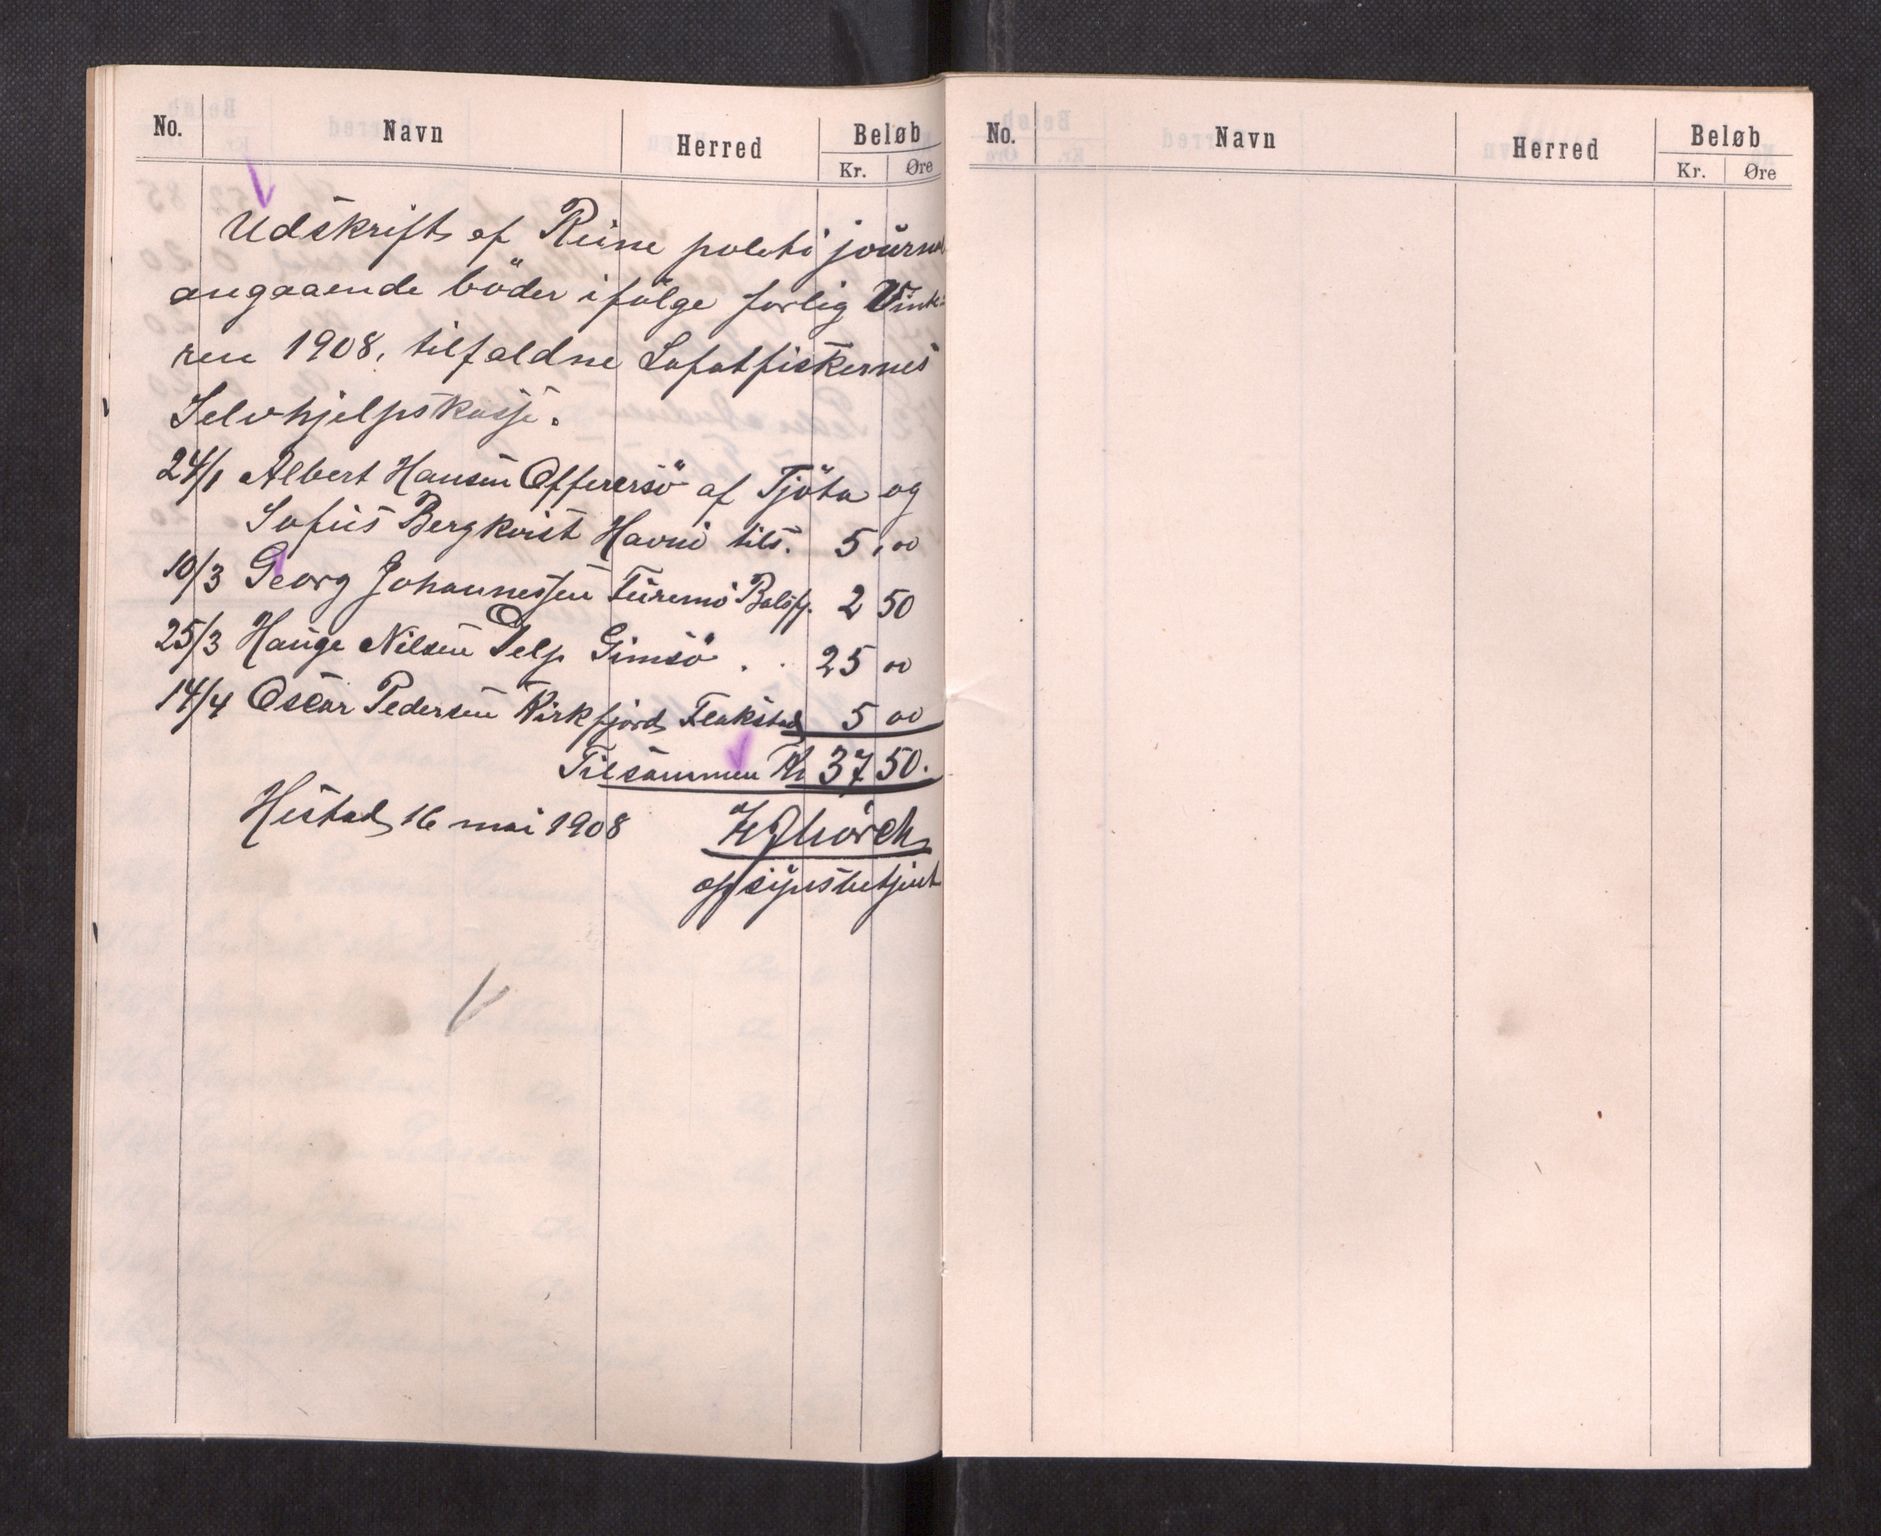 No. Navn Herred Beløb
Kr. Øre
Udskrift af Reine politi journal
angaaende böder ifölge forlig Vinte-
ren 1908, tilfaldne Lofotfiskernes
Selvhjelpskasse.
24/1 Albert Hansen Offersö af Tjöta og
Sofus Bergkvist Havnö tils. 5,00
10/3 Georg Johannessen Furemo Balsfj. 2 50
25/3 Hauge Nilsen Delp Gimsö . . 25 00
14/4 Oscar Pedersen Kirkfjord Flakstad 5 00
Tilsammen Kr 37 50.
Hestad 16 mai 1908
Mörch
opsynsbetjent
No. Navn Herred Beløb
Kr. Øre